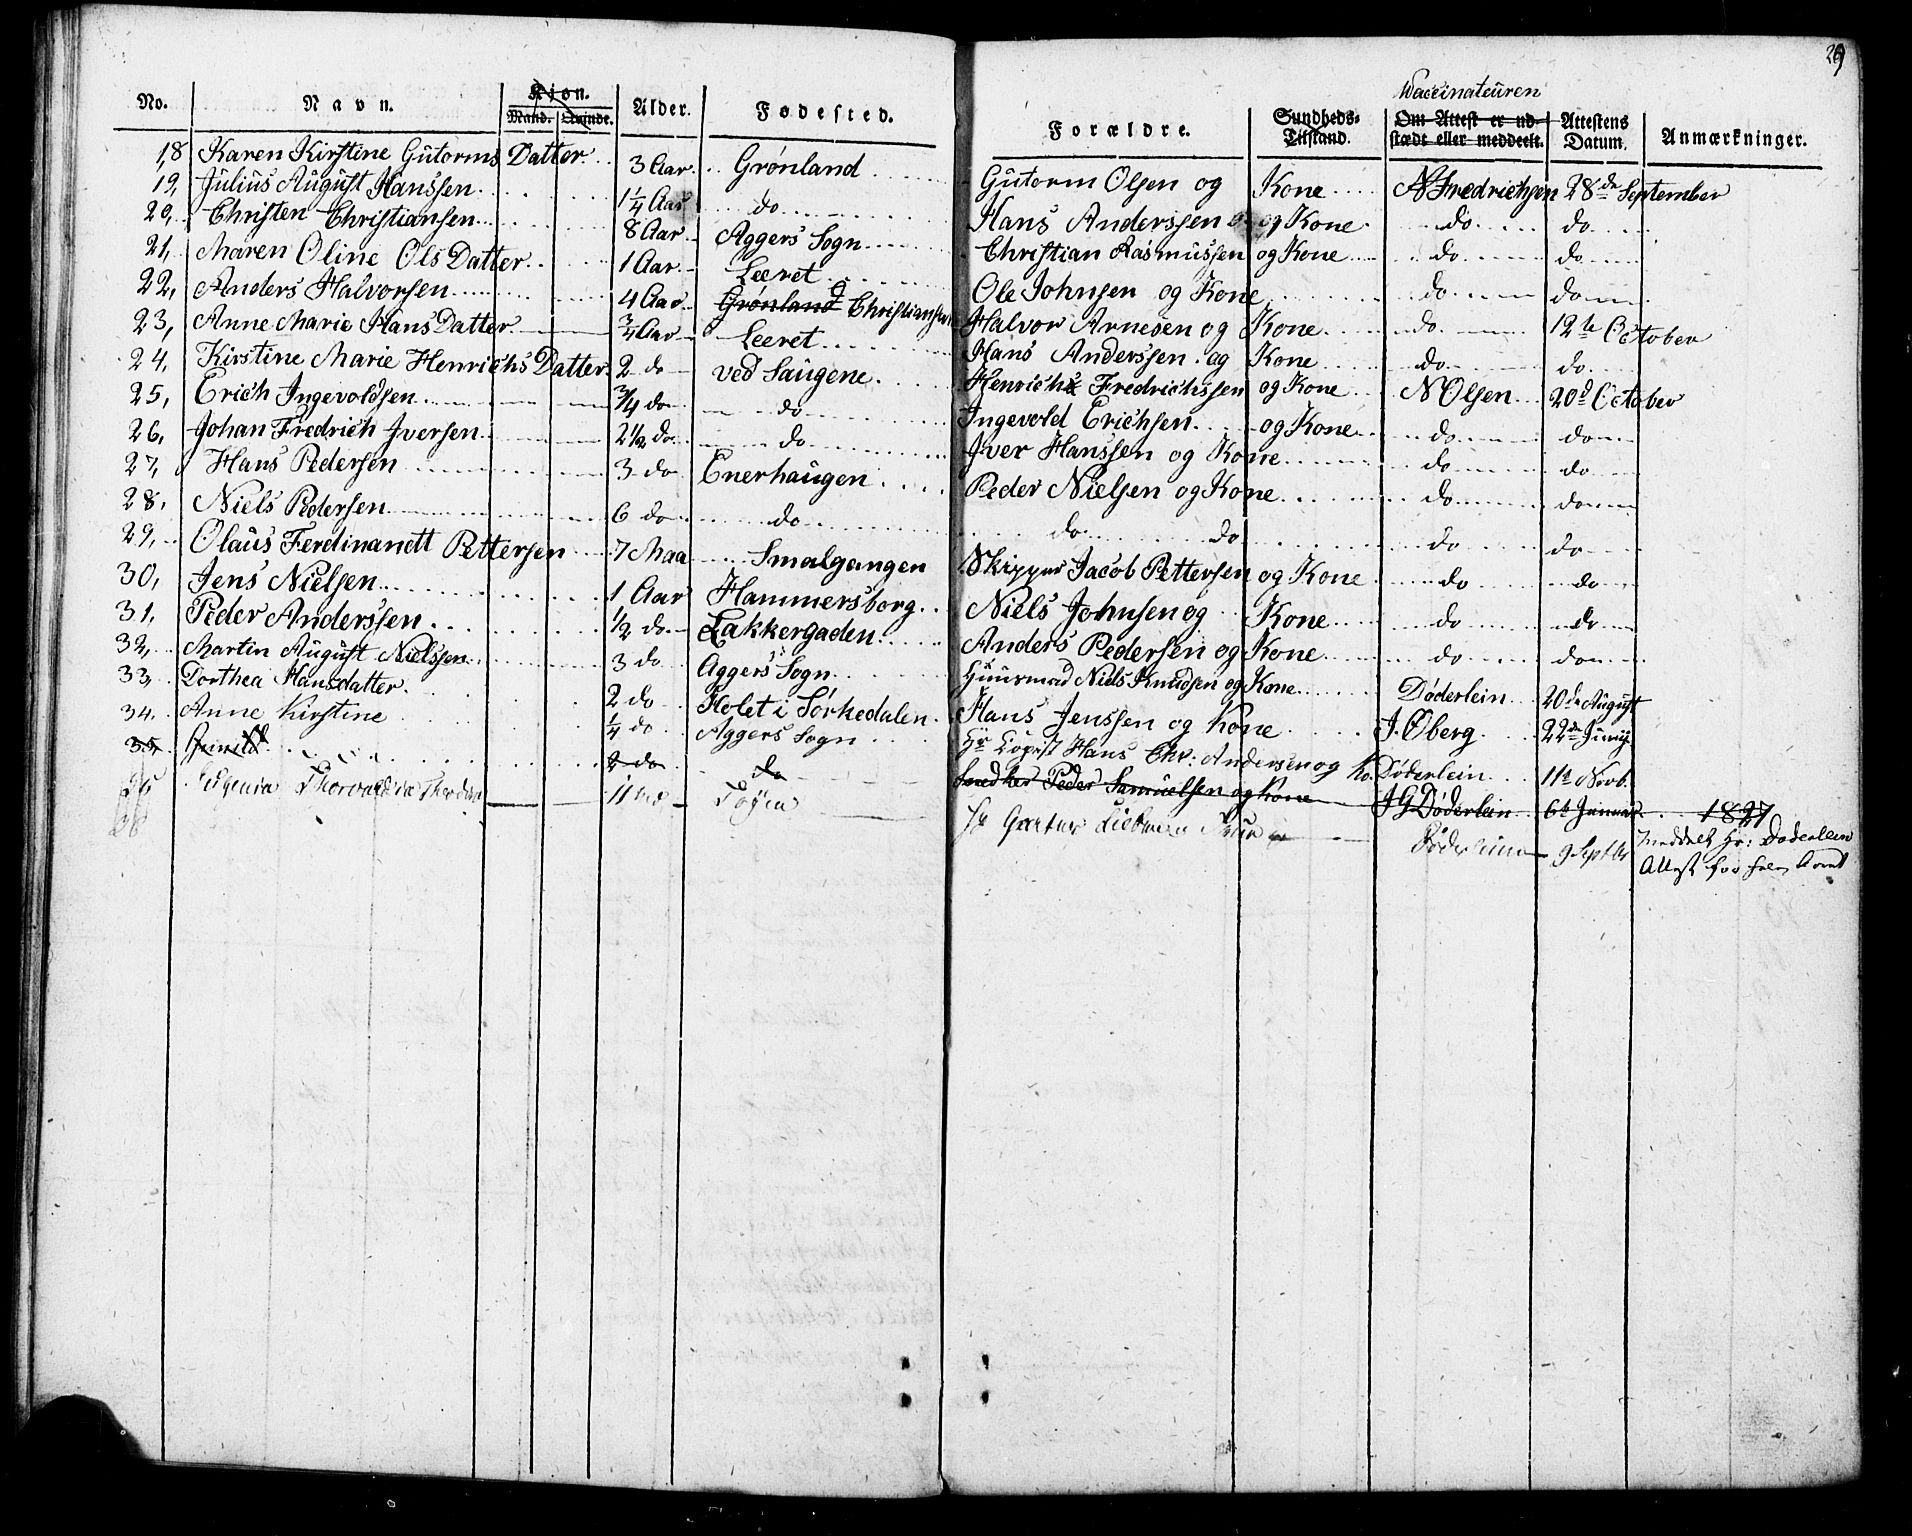 29
Waccinateuren
No. Navn. Kjøn. Mand. Qvinde. Alder. Fødested. Forældre. Sundheds-Tilstand. Om Attest er ud-stædt eller meddeelt. Attestens Datum. Anmærkninger.
18 Karen Kirstine Gutorms Datter 3 Aar Grønland Gutorm Olsen og Kone N Fredrichsen 28de September
19, Julius August Hanssen 1 1/4 Aar do Hans Anderssen og Kone do do
20, Christen Christiansen 8 Aar Aggers Sogn Christian Rasmussen og Kone do do
21, Maren Oline Ols Datter 1 Aar Leeret Ole Johnsen og Kone do do
22, Anders Halvorsen 4 Aar Grønland Halvor Arnesen og Kone do 12te October
23, Anne Marie Hans Datter 3/4 Aar Leeret Hans Anderssen og Kone do do
24, Kirstine Marie Henrichs Datter 2 do ved Saugene Henrich Fredrichssen og Kone N Olsen 20d October
25, Erich Ingevoldsen 3/4 do do Ingevold Erichsen og Kone do do
26, Johan Fredrich Iversen 2 1/2 do do Iver Hanssen og Kone do do
27, Hans Pedersen 3 do Enerhaugen Peder Nielsen og Kone do do
28, Niels Pedersen 6 do do do do do do
29, Olaus Ferdinandt Pettersen 7 Maa Smalgangen Skipper Jacob Pettersen og Kone do do
30, Jens Nielsen 1 Aar Hammersborg Niels Johnsen og Kone do do
31, Peder Anderssen 1/2 do Lakkergaden Anders Pedersen og Kone do do
32, Martin August Nielssen 3 do Aggers Sogn Huusmad Niels Knudsen og Kone Døderlein 20de August
33, Dorthea Hansdatter 2 do Holet i Sørkedalen Hans Jenssen og Kone J. Øberg 22de Juny
34. Anne Kirstine 1/4 do Aggers Sogn Hr Hans Chr: Andersen og Ko Døderlein 11te Novb.
35 2 do do Snedker Peder Samuelsen og Kone J G Døderlein 6te Januar 1827
Thorvaldine 11 Døderlein 9 Septbr meddelt Hr: Døderlein
Attest for